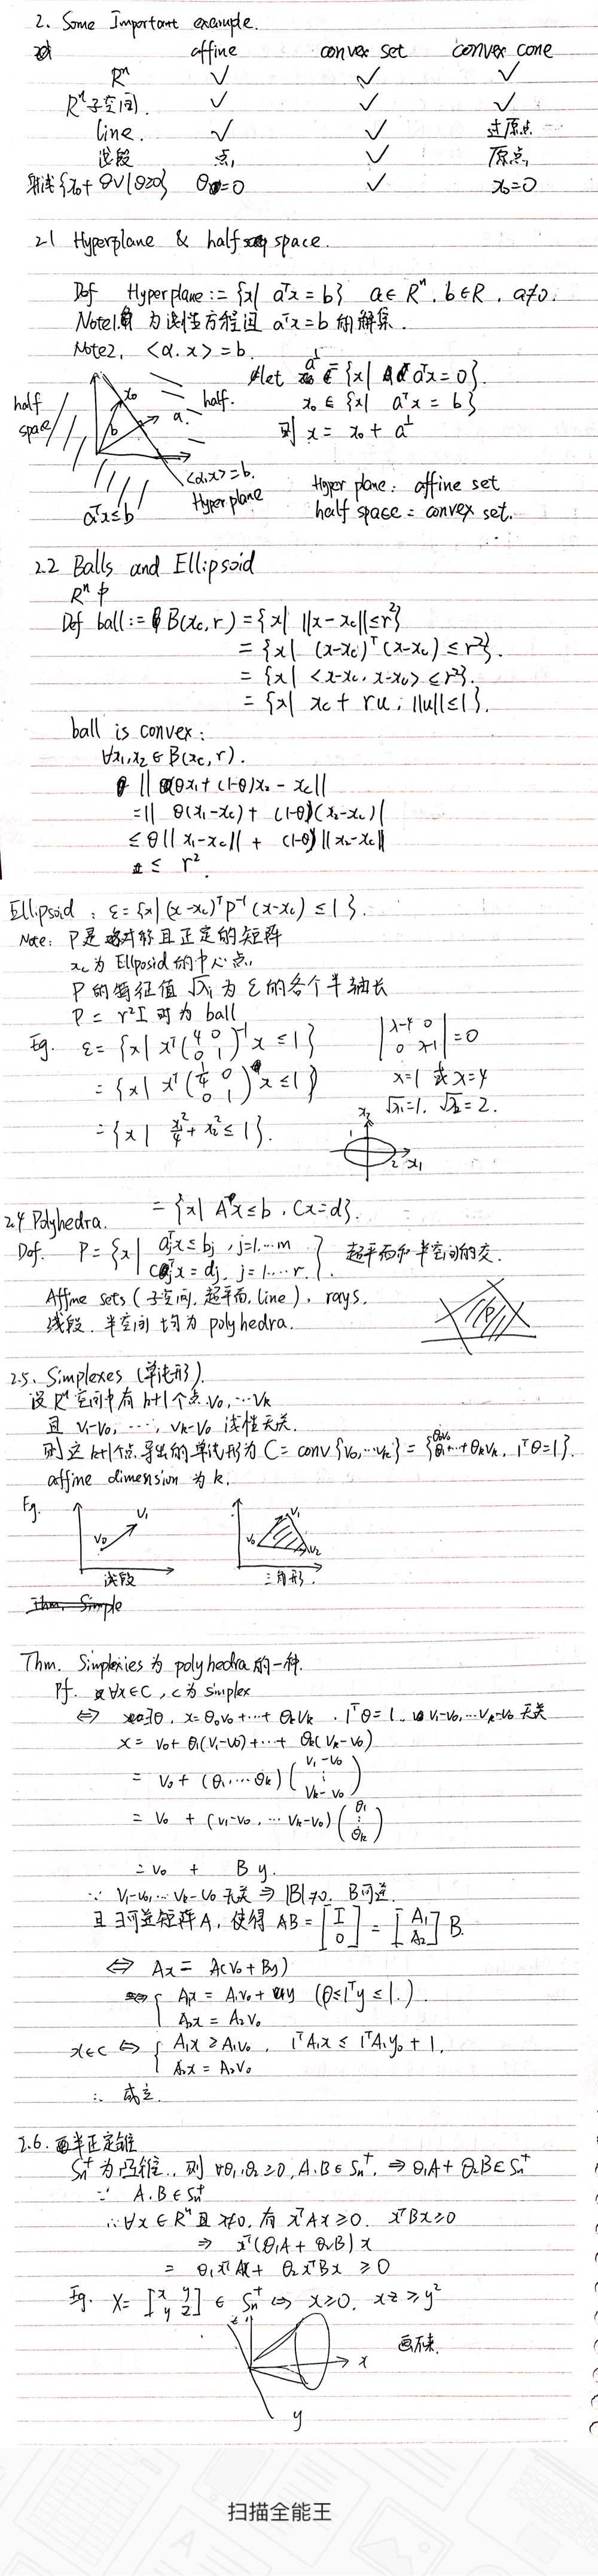 2. Some Important example.
affine convex set convex cone
Rⁿ ✓ ✓ ✓
Rⁿ子空间. ✓ ✓ ✓
line. ✓ ✓ 过原点
线段 点, ✓ 原点,
射线{x₀+θv|θ≥0} θ=0 ✓ x₀=0
2.1 Hyperplane & half space.
Def Hyperplane := {x| aᵀx = b} a∈Rⁿ, b∈R, a≠0.
Note1. 为线性方程组 aᵀx=b 的解集.
Note2. <a, x> = b.
let a^⊥ ∈ {x| aᵀx=0}.
x₀ ∈ {x| aᵀx = b}
则 x = x₀ + a^⊥
half space
x₀
b
a.
half.
<a,x>=b.
Hyperplane
aᵀx≤b
Hyper plane: affine set
half space = convex set.
2.2 Balls and Ellipsoid
Rⁿ中
Def ball := B(xc, r) = {x| ||x-xc||≤r²}
= {x| (x-xc)ᵀ(x-xc) ≤ r²}.
= {x| <x-xc, x-xc> ≤ r²}.
= {x| xc + ru ; ||u||≤1}.
ball is convex:
∀x₁,x₂∈B(xc,r).
||θx₁+(1-θ)x₂ - xc||
=|| θ(x₁-xc) + (1-θ)(x₂-xc)|
≤ θ||x₁-xc|| + (1-θ)||x₂-xc||
≤ r².
Ellipsoid : ε={x|(x-xc)ᵀP⁻¹(x-xc) ≤1}.
Note: P是对称且正定的矩阵
xc为Ellposid的中心点.
P的特征值 √λi 为ε的各个半轴长
P = r²I 时为 ball
Eg. ε= {x| xᵀ(4 0 0 1)⁻¹x ≤1} |λ-4 0 0 λ-1|=0
= {x| xᵀ(1/4 0 0 1)x ≤1} λ=1 或 λ=4
={x| x₁²/4 + x₂² ≤1}. √λ₁=1. √λ₂=2.
x₂
1
2 x₁
= {x| Aᵀx≤b, Cx=d}.
2.4 Polyhedra.
Def. P={x| ajᵀx≤bj, j=1,...m cjᵀx=dj, j=1....r}. 超平面和半空间的交.
Affine sets (子空间, 超平面, line), rays,
线段. 半空间 均为 polyhedra.
P
2.5. Simplexes (单纯形).
设Rⁿ空间中有 k+1个点 v₀,...vk
且 v₁-v₀, ..., vk-v₀ 线性无关.
则这k+1个点导出的单纯形为 C=conv{v₀,...vk} = {θ₀v₀+...+θkvk, 1ᵀθ=1}.
affine dimension 为 k.
Eg.
v₀ v₁
线段
v₀ v₁ v₂
三角形.
Thm. Simple
Thm. Simplexies 为 polyhedra 的一种.
Pf. ∀x∈C, c为 simplex
⇔ ∃θ, x=θ₀v₀+...+θkvk, 1ᵀθ=1. v₁-v₀, ... vk-v₀ 无关
x = v₀+θ₁(v₁-v₀)+...+ θk(vk-v₀)
= v₀+ (θ₁,...θk)(v₁-v₀ ⋮ vk-v₀)
= v₀ + (v₁-v₀, ... vk-v₀)(θ₁ ⋮ θk)
= v₀ + By.
∵ v₁-v₀,... vk-v₀ 无关 ⇒ |B|≠0. B可逆.
且 ∃可逆矩阵A, 使得 AB = [I 0] = [A₁ A₂] B.
⇔ Ax = A(v₀+By)
⇔ { A₁x = A₁v₀ + y (0≤1ᵀy ≤1.)
A₂x = A₂v₀
x∈C ⇔ { A₁x ≥A₁v₀, 1ᵀA₁x ≤ 1ᵀA₁y₀+1.
A₂x = A₂v₀
∴ 成立.
2.6. 半正定锥
Sn⁺为凸锥.. 则 ∀θ₁,θ₂≥0, A.B∈Sn⁺, ⇒ θ₁A+θ₂B∈Sn⁺
∵ A.B∈Sn⁺
∴∀x∈Rⁿ且x≠0, 有 xᵀAx≥0. xᵀBx≥0
⇒ xᵀ(θ₁A+θ₂B)x
= θ₁xᵀAx + θ₂xᵀBx ≥0
Eg. X= [x y y z] ∈ Sn⁺ ⇔ x≥0, xz≥y²
z
x
y
画不来.
扫描全能王